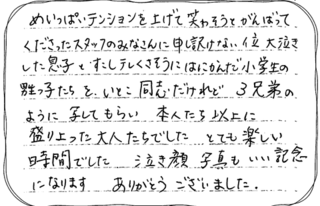 めいっぱいテンションを上げて笑わそうとがんばって
くださったスタッフのみなさんに申し訳けない位大泣き
した息子と すこしテレくさそうにはにかんだ小学生の
甥っ子たち を、いとこ同志だけれど 3兄弟の
ように 写してもらい 本人たち以上に
盛り上った大人たちでした とても楽しい
時間でした 泣き顔 写真も いい記念
になります ありがとう ございました.